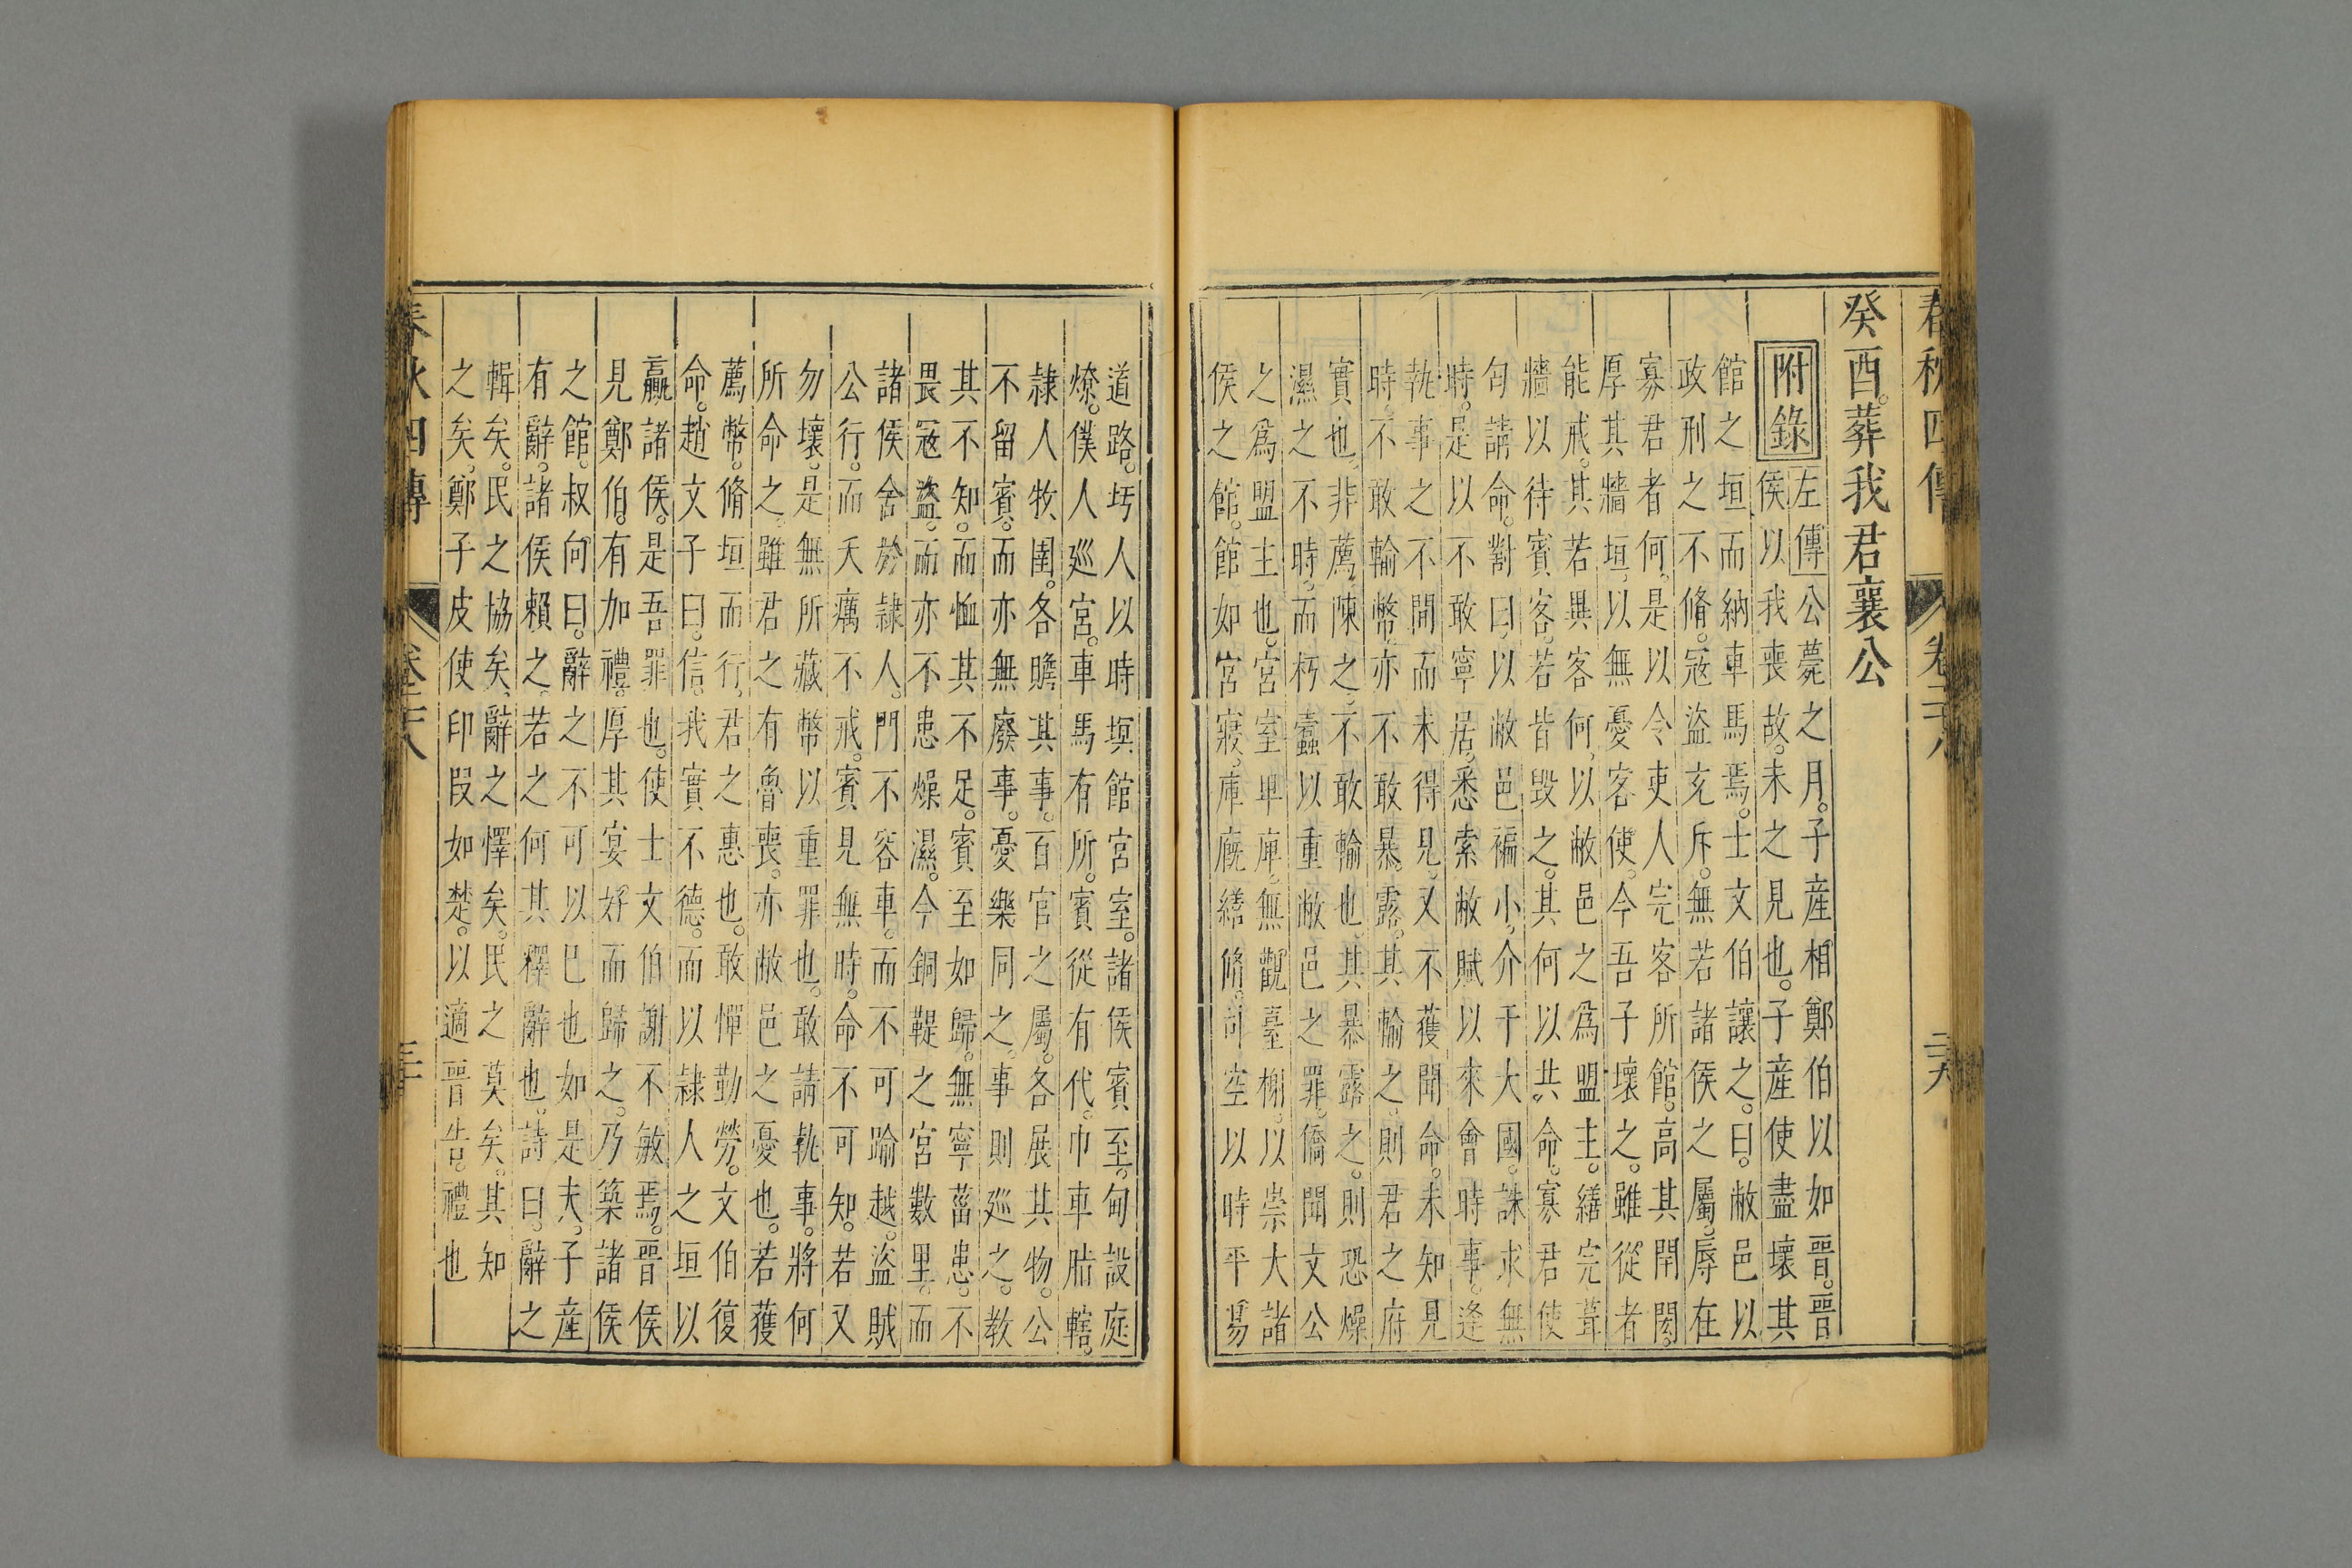 春秋四傳 卷二十八 二十九
癸酉。葬我君襄公
附錄
左傳公薨之月。子產相鄭伯以如晉。晉
侯以我喪故。未之見也。子產使盡壞其
館之垣而納車馬焉。士文伯讓之。曰。敝邑以
政刑之不脩。寇盜充斥。無若諸侯之屬。辱在
寡君者何。是以令吏人完客所館。高其閈閎。
厚其牆垣。以無憂客使。今吾子壞之。雖從者
能戒。其若異客何。以敝邑之爲盟主。繕完葺
牆以待賓客。若皆毀之。其何以共命。寡君使
匄請命。對曰。以敝邑褊小。介于大國。誅求無
時。是以不敢寧居。悉索敝賦以來會時事。逢
執事之不閒而未得見。又不獲聞命。未知見
時。不敢輸幣。亦不敢暴露。其輸之。則君之府
實也。非薦陳之。不敢輸也。其暴露之。則恐燥
濕之不時。而朽蠹以重敝邑之罪。僑聞文公
之爲盟主也。宮室卑庳。無觀臺榭。以崇大諸
侯之館。館如宮寢。庫廐繕脩。司空以時平易
道路。圬人以時塓館宮室。諸侯賓至。甸設庭
燎。僕人巡宮。車馬有所。賓從有代。巾車脂轄。
隷人牧圉。各瞻其事。百官之屬。各展其物。公
不留賓。而亦無廢事。憂樂同之。事則巡之。教
其不知。而恤其不足。賓至如歸。無寧菑患。不
畏寇盜。而亦不患燥濕。今銅鞮之宮數里。而
諸侯舍於隷人。門不容車。而不可踰越。盜賊
公行。而夭癘不戒。賓見無時。命不可知。若又
勿壞。是無所藏幣以重罪也。敢請執事。將何
所命之。雖君之有魯喪。亦敝邑之憂也。若獲
薦幣。脩垣而行。君之惠也。敢憚勤勞。文伯復
命。趙文子曰。信。我實不德。而以隷人之垣以
贏諸侯。是吾罪也。使士文伯謝不敏焉。晉侯
見鄭伯。有加禮。厚其宴好而歸之。乃築諸侯
之館。叔向曰。辭之不可以已也如是夫。子產
有辭。諸侯賴之。若之何其釋辭也。詩曰。辭之
輯矣。民之協矣。辭之懌矣。民之莫矣。其知
之矣。鄭子皮使印段如楚。以適晉告。禮也
春秋四傳 卷二十八 三十